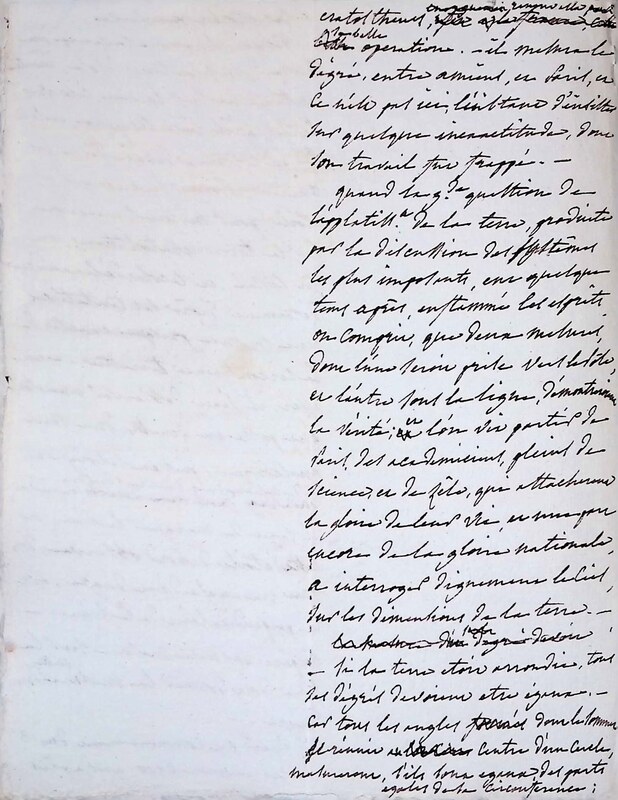 eratosthenes,
belle operation. - il mesura le
dégré, entre amiens, et paris, et
ce n'est pas ici, l'instant d'insister
sur quelque inexactitude, dont
son travail fut frappé. -
quand la g.de question de
l'applatiss.t de la terre, produite
par la discussion des systêmes
les plus imposants, eut quelque
tems après, enflammé les esprits,
on comprit, que deux mesures,
dont l'une seroit prise vers le pole,
et l'autre sous la ligne, démontreroient
la vérité; et l'on vit partir de
paris, des academiciens, pleins de
science, et de zèle, qui attacherent
la gloire de leur vie, et une part
encore de la gloire nationale,
a interroger dignement le ciel,
sur les dimentions de la terre. -
- si la terre etoit arrondie, tous
ses dégrés devoient etre égaux. -
car tous les angles dont le sommet
se réunit centre d'un cercle,
mesurent, s'ils sont egaux des parts
egales de la circonférence;